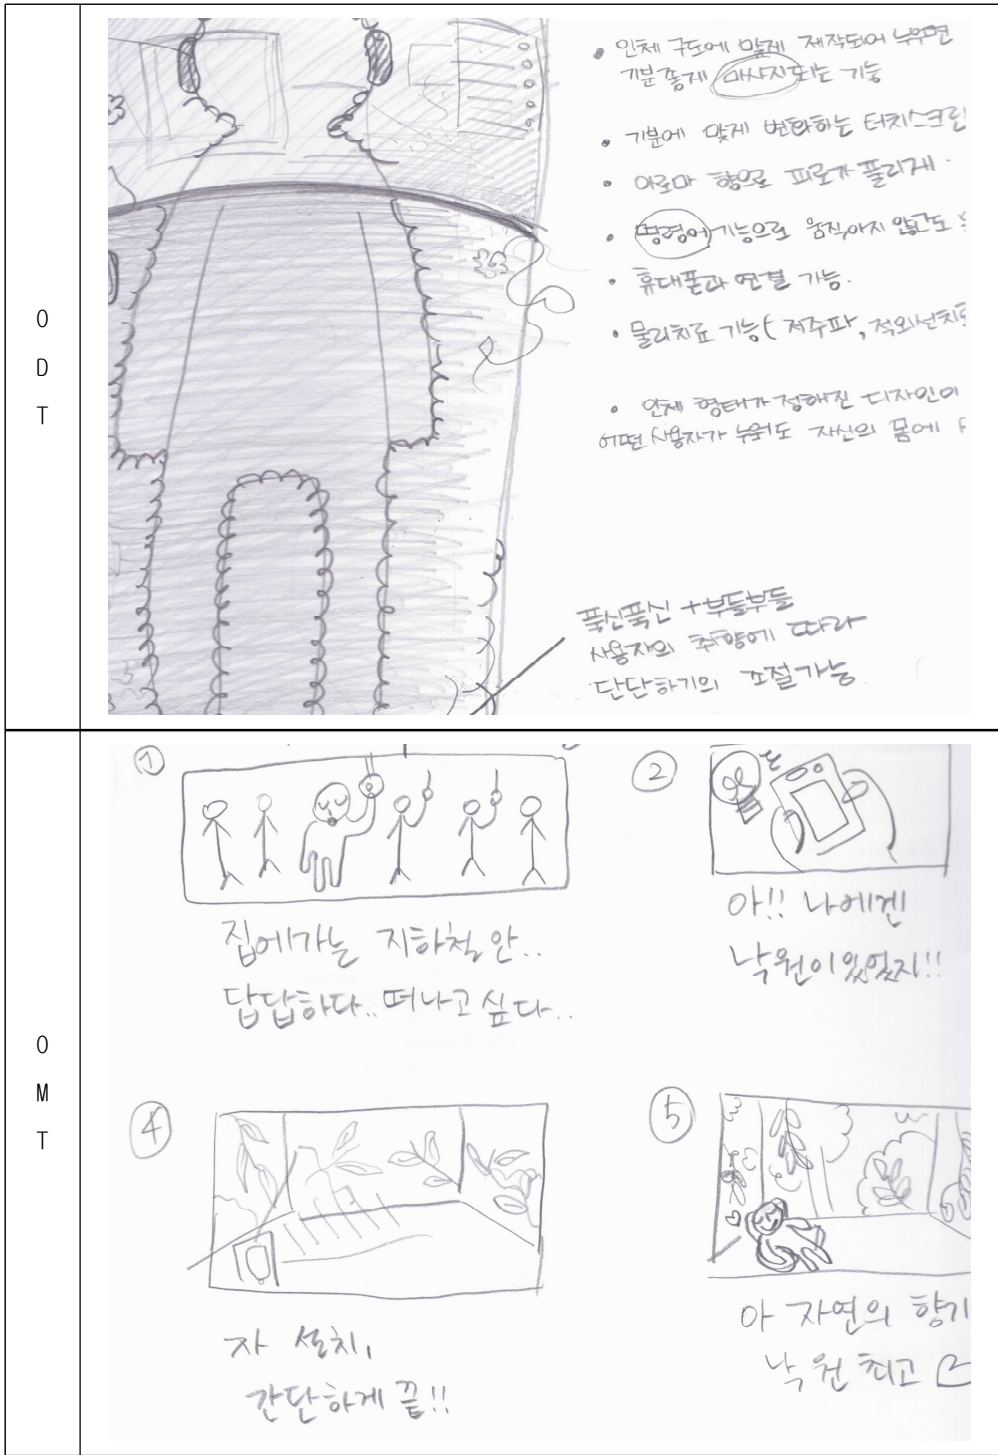 O
D
T
• 인체 구도에 맞게 제작되어 누우면
기분 좋게 마사지되는 기능
• 기분에 맞게 변화하는 터치스크린
• 아로마 향으로 피로가 풀리게.
• 명령어 기능으로 움직이지 않고도
• 휴대폰과 연결 기능.
• 물리치료 기능( 저주파, 적외선치료
• 인체 형태가 정해진 디자인이
어떤 사용자가 누워도 자신의 몸에
푹신푹신 + 부들부들
사용자의 취향에 따라
단단하기의 조절가능
O
M
T
①
집에가는 지하철 안..
답답하다.. 떠나고 싶다..
②
아!! 나에겐
낙원이있었지!!
④
자 설치,
간단하게 끝!!
⑤
아 자연의 향기
낙원 최고